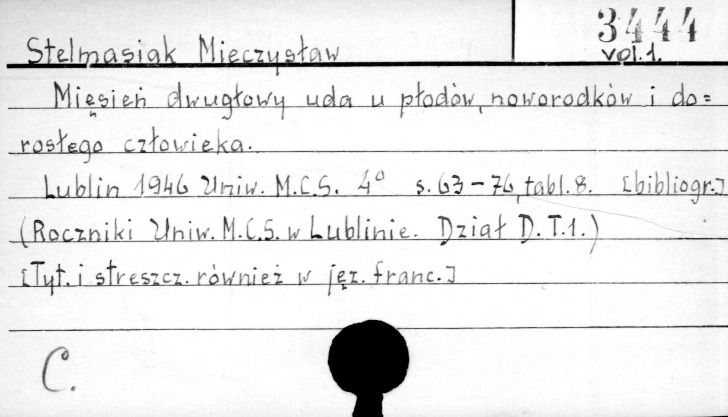 3444
Stelmasiak Mieczysław vol. 1.
Mięsień dwugłowy uda u płodów, noworodków i do=
rosłego człowieka.
Lublin 1946 Uniw. M.C.S. 4° s. 63-76, tabl. 8. [bibliogr.]
(Roczniki Uniw. M.C.S. w Lublinie. Dział D. T. 1.)
[Tyt. i streszcz. również w jęz. franc.]
C.